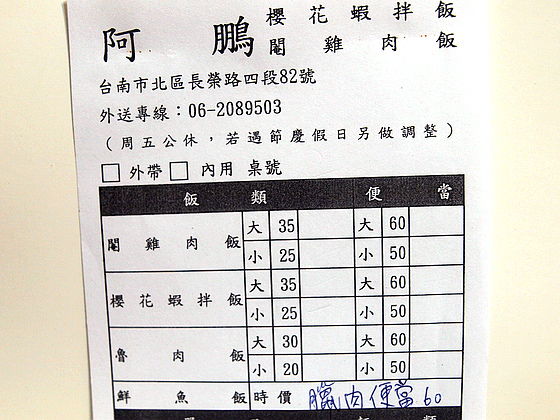 阿鵬 櫻花蝦拌飯
閹雞肉飯
台南市北區長榮路四段82號
外送專線：06-2089503
（周五公休，若遇節慶假日另做調整）
外帶 內用 桌號
飯類 便當
閹雞肉飯 大 35 大 60
小 25 小 50
櫻花蝦拌飯 大 35 大 60
小 25 小 50
魯肉飯 大 30 大 60
小 20 小 50
鮮魚飯 時價 臘肉便當60